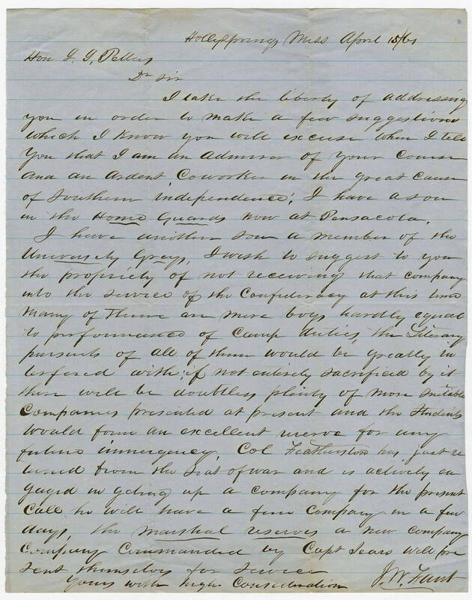 Hollysprings Miss April 15/61
Hon J. J. Pettus
Dr Sir
I take the liberty of addressing
you in order to make a few suggestions
which I know you will excuse when I tell
you that I am an admirer of your course
and an ardent Coworker in the great cause
of Southern independence; I have a son
in the Home Guards now at Pensacola.
I have another son a member of the
University Greys, I wish to suggest to you
the propriety of not receiving that company
into the service of the Confederacy at this time
Many of them are mere boys hardly equal
to preformance of Camp duties, the Literary
pursuits of all of them would be greatly in
terfered with; if not entirely sacrificed by it
there will be doubtless plenty of more suitable
Companies presented at present and the Students
would form an excellent reserve for any
future immergency, Col Featherston has just re
turned from the seat of war and is actively en
gaged in geting up a company for the present
Call he will have a fine Company in a few
days, the Marshal reserves a new company
Company Commanded by Capt Sears will pre
sent themselves for service
Yours with high Consideration